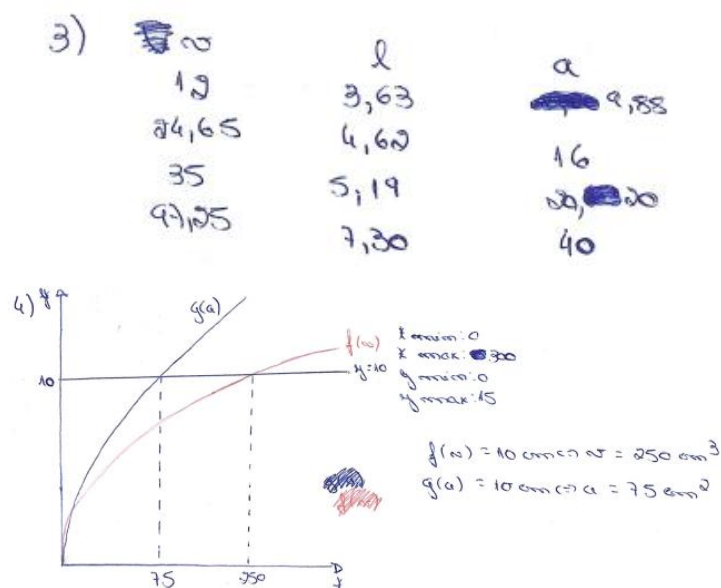 3) v l a
12 3,63 9,88
24,65 4,62 16
35 5,19 20,20
97,25 7,30 40
4) y
g(a)
f(v)
y=10
10
75 250
x
x min: 0
x max: 300
y min: 0
y max: 15
f(v) = 10 cm ⇔ v = 250 cm³
g(a) = 10 cm ⇔ a = 75 cm²